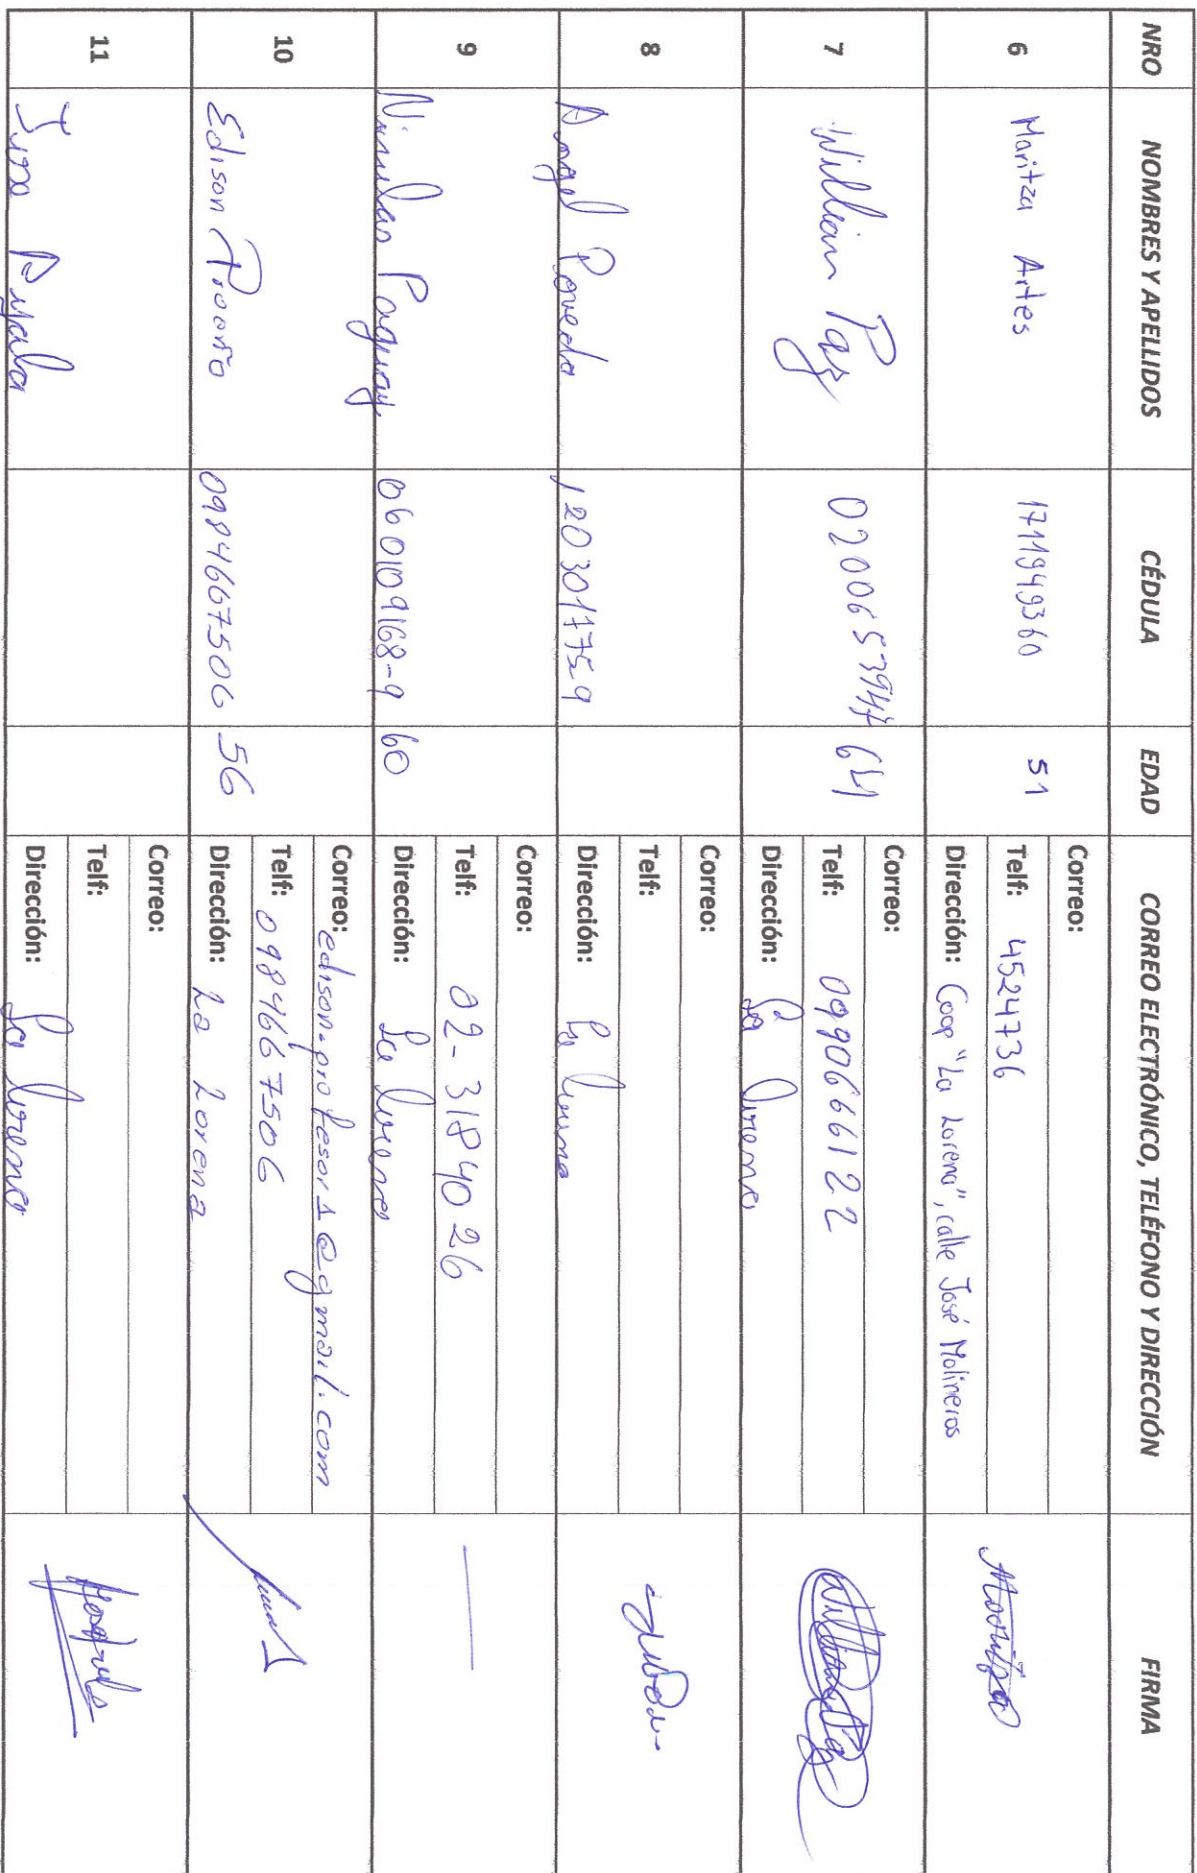 NRO NOMBRES Y APELLIDOS CÉDULA EDAD CORREO ELECTRÓNICO, TELÉFONO Y DIRECCIÓN FIRMA
6 Maritza Artes 1711949360 51
Correo:
Telf: 4524736
Dirección: Coop "La Lorena", calle José Molineros
Maritza
7 William Paz 64
Correo:
Telf: 0990666122
Dirección: La Lorena
8 Angel Poveda 1203011759
Correo:
Telf:
Dirección:
9 Paguay 060109168-9 60
Correo:
Telf: 02-3184026
Dirección: La Lorena
10 Edison Proaño 0984667506 56
Correo: edison.profesor1@gmail.com
Telf: 0984667506
Dirección: La Lorena
11
Correo:
Telf:
Dirección: La Lorena